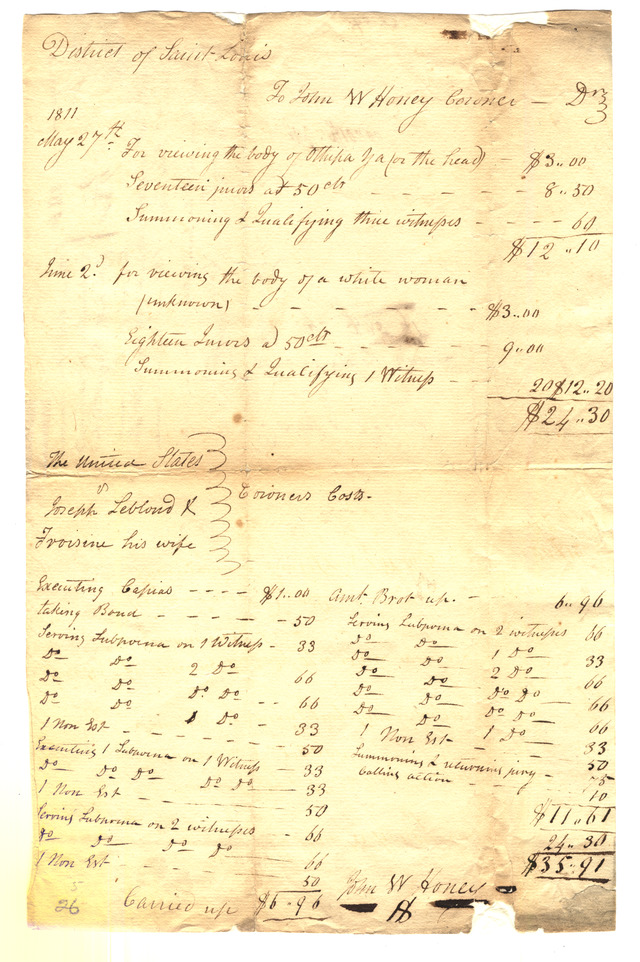 District of Saint Louis
To John W Honey Coroner — Dr
1811
May 27th For viewing the body of (or the head) - $3..00
Seventeen jurors at 50 cts - - - - - 8..50
Summoning & Qualifying three witnesses - - - - 60
$12..10
June 2d for viewing the body of a white woman
(unknown) - - - - - - $3..00
Eighteen Jurors a) 50 cts - - - - 9..00
Summoning & Qualifying 1 Witness - - 20 $12..20
$24..30
The United States
vs
Joseph Leblond &
Froisine his wife
Coroners Costs-
Executing Capias - - - - $1..00
taking Bond - - - - - 50
Serving Subpoena on 1 Witness - 33
Do Do 2 Do 66
Do Do Do Do - - 66
Do Do 1 Do - - 33
1 Non Est - - - - - - 50
Executing 1 Subpoena on 1 Witness - - 33
Do Do Do Do Do - 33
1 Non Est - - - - - 50
Serving Subpoena on 2 witnesses - 66
Do Do Do Do 66
1 Non Est - - - 50
Carried up $6-96
Amt Brot up. - 6..96
Serving Subpoena on 2 witnesses 66
Do Do 1 Do 33
Do Do 2 Do 66
Do Do Do Do - 66
Do Do Do Do - 66
1 Non Est 1 Do - 33
Summoning & returning jury - 50
Calling action - - - 75
10
$11..61
24..30
$35..91
John W Honey
5
26